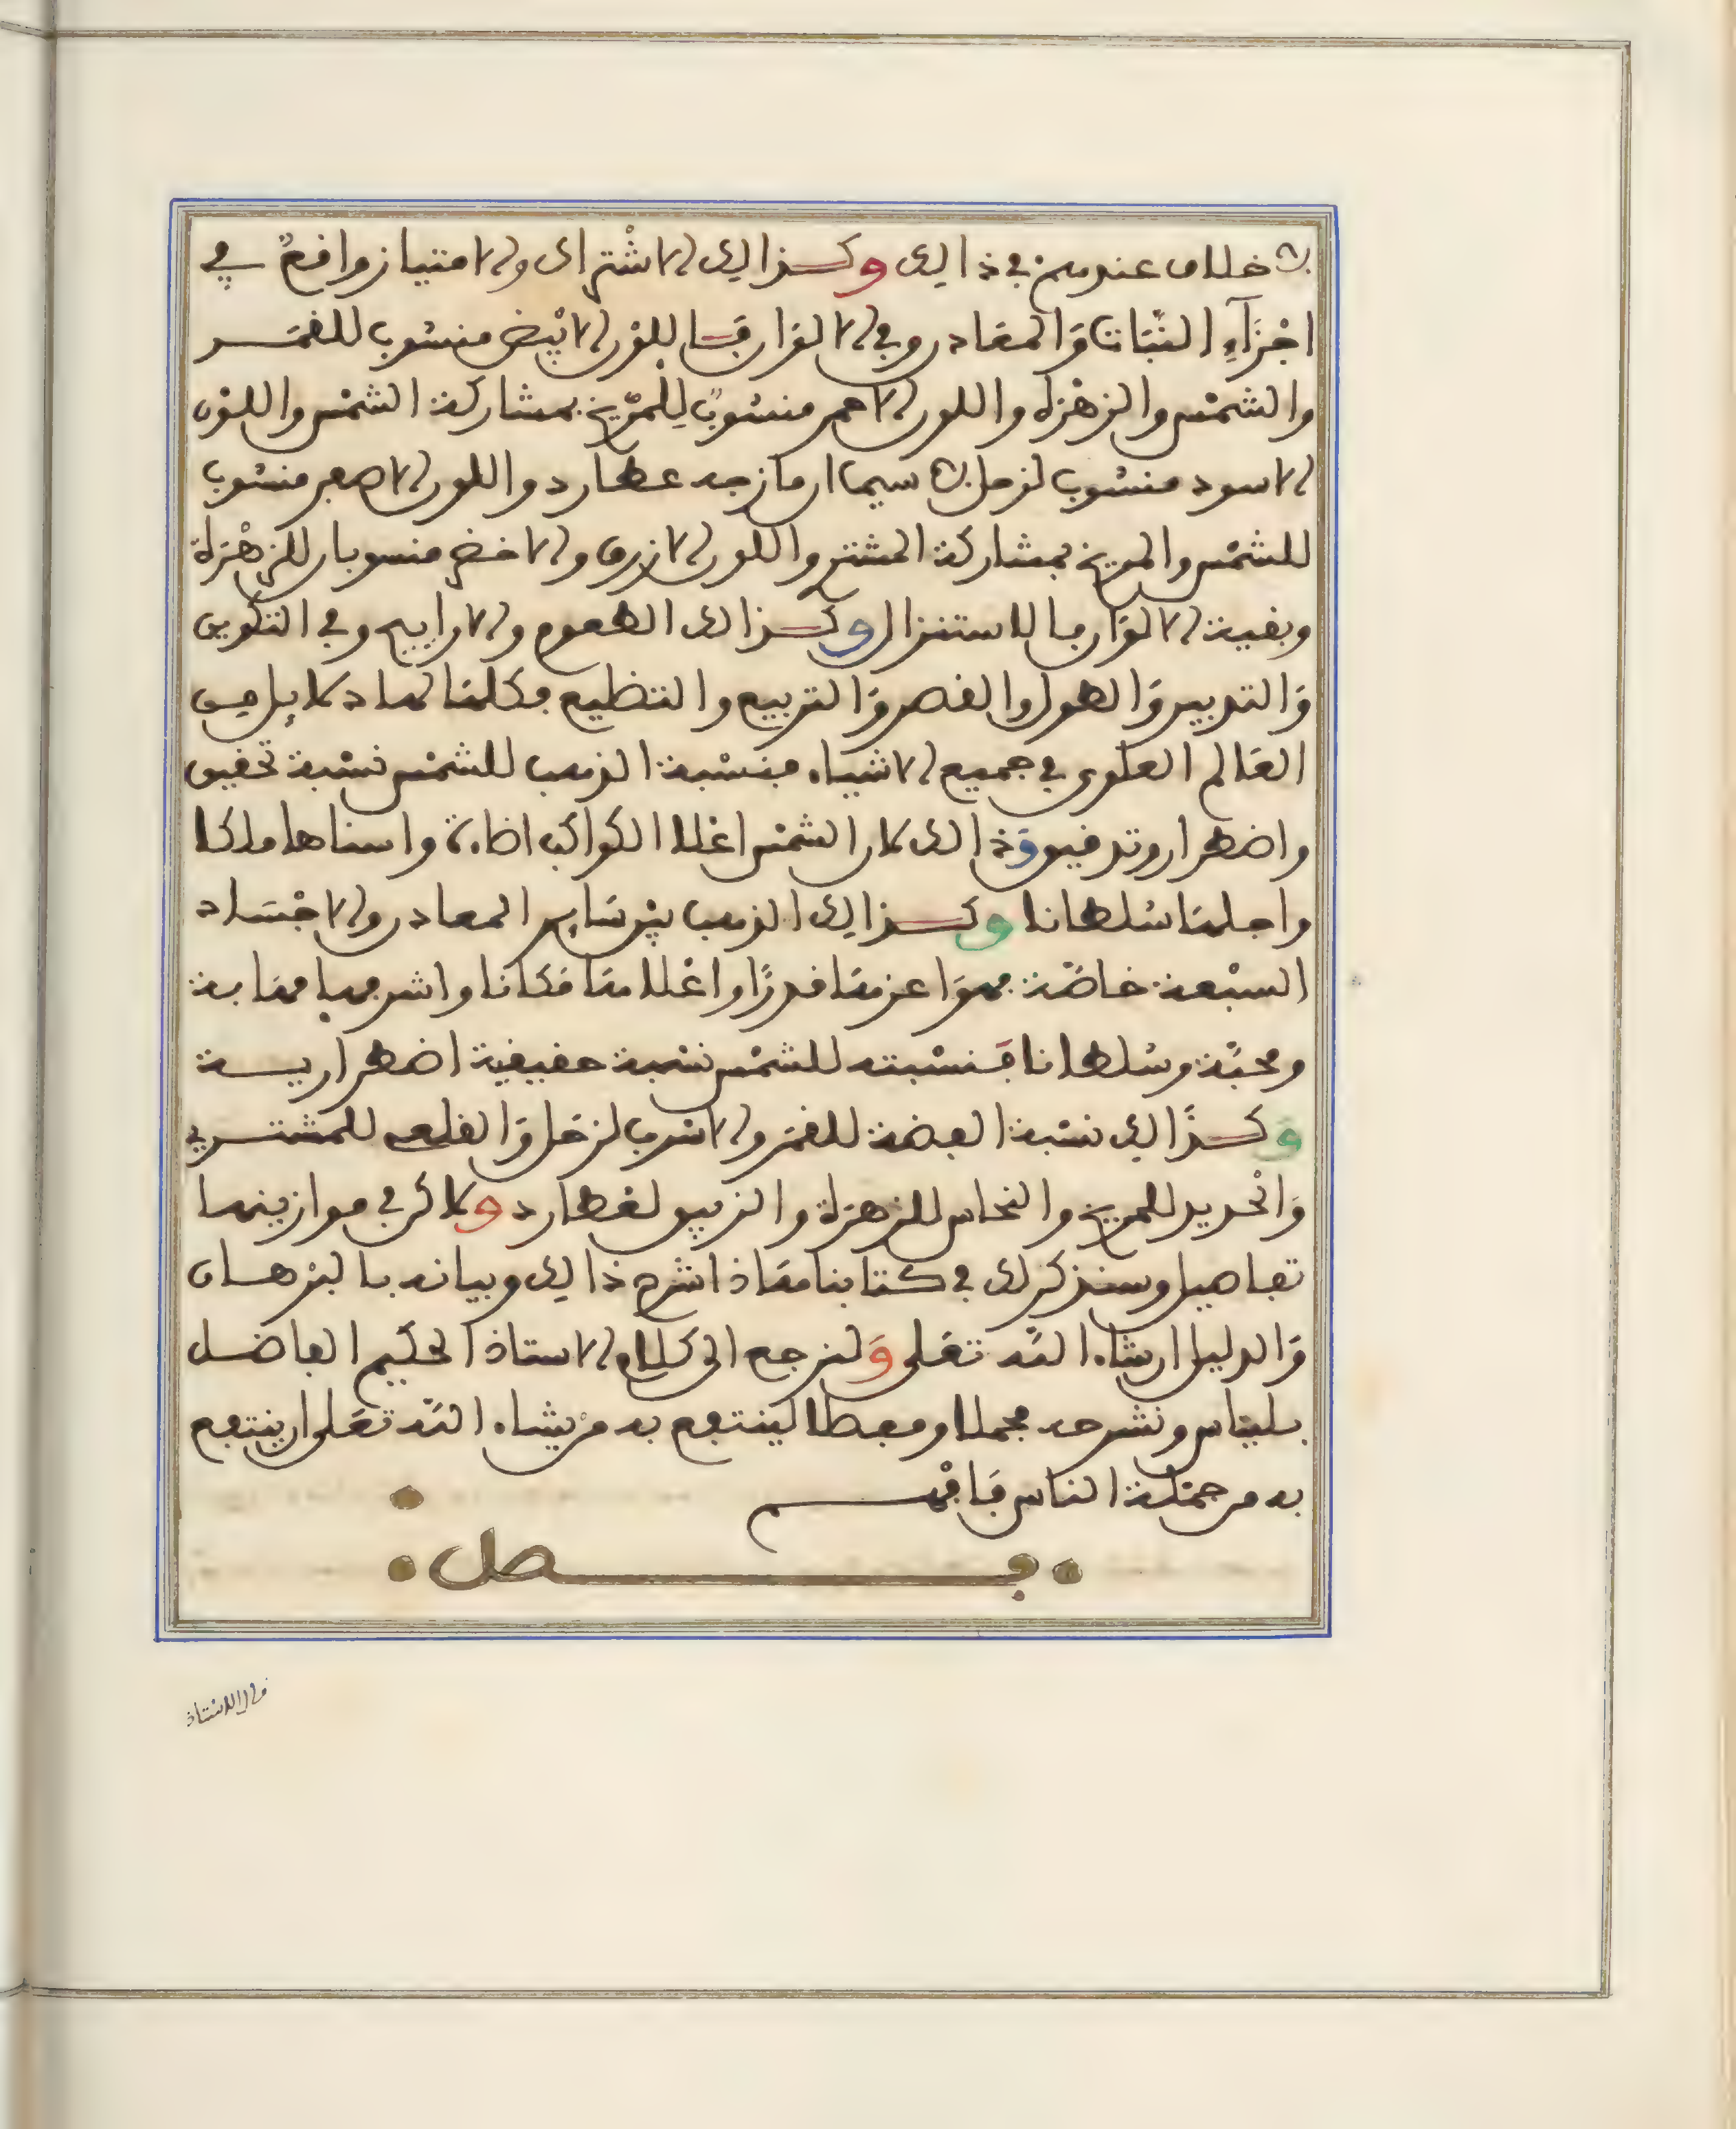 لا خلاف عندهم في ذالك وكذالك الاشتراك والامتياز واقع في
اجزآء النبات والمعادن وفي الالوان فاللون الابيض منسوب للقمر
والشمس والزهرة واللون الاحمر منسوب للمريخ بمشاركة الشمس واللون
الاسود منسوب لزحل لا سيما ان مازجه عطارد واللون الاصفر منسوب
للشمس والمريخ بمشاركة المشتري واللون الازرق والاخضر منسوبان للزهرة
وبقية الالوان بالاستنزال وكذالك الطعوم والاراييح وفي التكوين
والتدبير والطول والقصر والتربيع والتظليع فكلها لها دلايل من
العالم العلوي في جميع الاشياء فنسبة الذهب للشمس نسبة تحقيق
واضطرار وتدقيق وذالك لان الشمس اعلا الكواكب اضاءة واسناها ملكا
واجلها سلطانا وكذالك الذهب بين ساير المعادن والاجساد
السبعة خاصة فهو اعزها قدرا واعلاها مكانا واشرفها مهابة
ومحبة وسلطانا فنسبته للشمس نسبة حقيقية اضطرارية
وكذالك نسبة الفضة للقمر والاسرب لزحل والقلعي للمشتري
والحديد للمريخ والنحاس للزهرة والزيبق لعطارد ولاكن في موازينها
تفاصيل وسنذكر لك في كتابنا هاذا شرح ذالك وبيانه بالبرهان
والدليل ان شاء الله تعلى ولنرجع الى كلام الاستاذ الحكيم الفاضل
بليناس ونشرحه مجملا ومفصلا لينتفع به من يشاء الله تعلى ان ينتفع
به من جملة الناس فافهم
فصل
قال الاستاذ